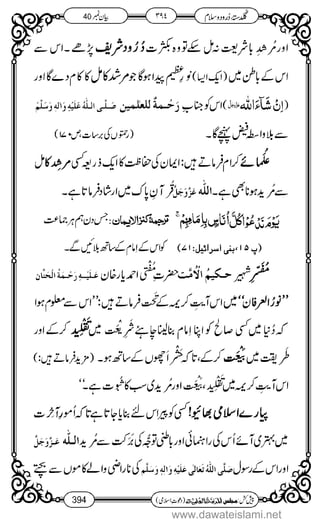 گلدستۂ دُرود و سلام ۳۹۴ بیان نمبر 40
اور اگر مُرشدِ باشریعت مل نہ سکے تو وہ بکثرت دُرُود شریف پڑھے۔ اس سے
اس کے باطن میں (ایسا ایک) نورِ عظیم پیدا ہوگا جو مرشدِ کامل کا کام دے گا اور
(اِنْ شَآءَ اللہ) اس کو جنابِ رَحۡمَۃٌ لِّلۡعٰلَمِیۡن صَلَّی اللہُ عَلَیْہِ وَاٰلِہٖ وَسَلَّم
سے بلاواسطہ فیض پہنچے گا۔
عُلَمائے کرام فرماتے ہیں: ایمان کی حفاظت کا ایک ذریعہ کسی مرشدِ کامل
سے مُرید ہونا بھی ہے۔ اللہ عَزَّوَجَلَّ قُرآنِ پاک میں ارشاد فرماتا ہے۔
یَوْمَ نَدْعُوْا كُلَّ اُنَاسٍۭ بِاِمَامِهِمْۚ ترجمۂ کنز الایمان: جس دن ہم ہر جماعت
(پ ۱۵، بنی اسرائیل: ۷۱) کو اس کے امام کے ساتھ بلائیں گے۔
مُفَسِّرِ شہیر حکیمُ الاُمَّت حضرتِ مُفتی احمد یار خان عَلَیْہِ رَحْمَۃُ الْحَنَّان
’’نورُ العرفان‘‘ میں اس آیتِ کریمہ کے تحت فرماتے ہیں: ’’اس سے معلوم ہوا
کہ دُنیا میں کسی صالح کو اپنا امام بنالینا چاہئے شَرِیعت میں تَقْلِید کرکے اور
طریقت میں بَیْعَت کرکے، تاکہ حَشْر اچھوں کے ساتھ ہو۔ (مزید فرماتے ہیں:)
اس آیتِ کریمہ میں تَقْلِید، بَیْعَت اور مُریدی سب کا ثبوت ہے۔‘‘
پیارے اسلامی بھائیو! کسی کو پیر اس لئے بنایا جاتا ہے تاکہ اُمورِ آخرت
میں بہتری آئے اُس کی راہنمائی اور باطنی توجُّہ کی بَرَکت سے مُرید اللہ عَزَّوَجَلَّ
اور اس کے رسول صَلَّی اللہُ تَعَالٰی عَلَیْہِ وَاٰلِہٖ وَسَلَّم کی ناراضی والے کاموں سے بچتے
394
www.dawateislami.net